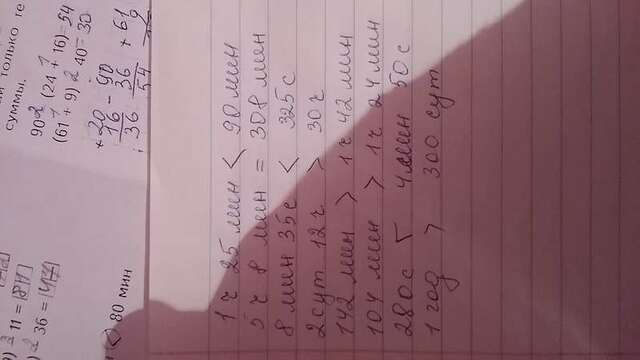 11 =
36 =
80 мин
только те
суммы.
90 2 (24 + 16) = 54
(61 + 9) 2 40 = 30
+ 20
16
36
- 90
36
54
+ 61
9
1 ч 25 мин < 90 мин
5 ч 8 мин = 308 мин
8 мин 35 с < 325 с
2 сут 12 ч > 30 ч
142 мин > 1 ч 42 мин
104 мин > 1 ч 24 мин
280 с < 4 мин 50 с
1 год > 300 сут